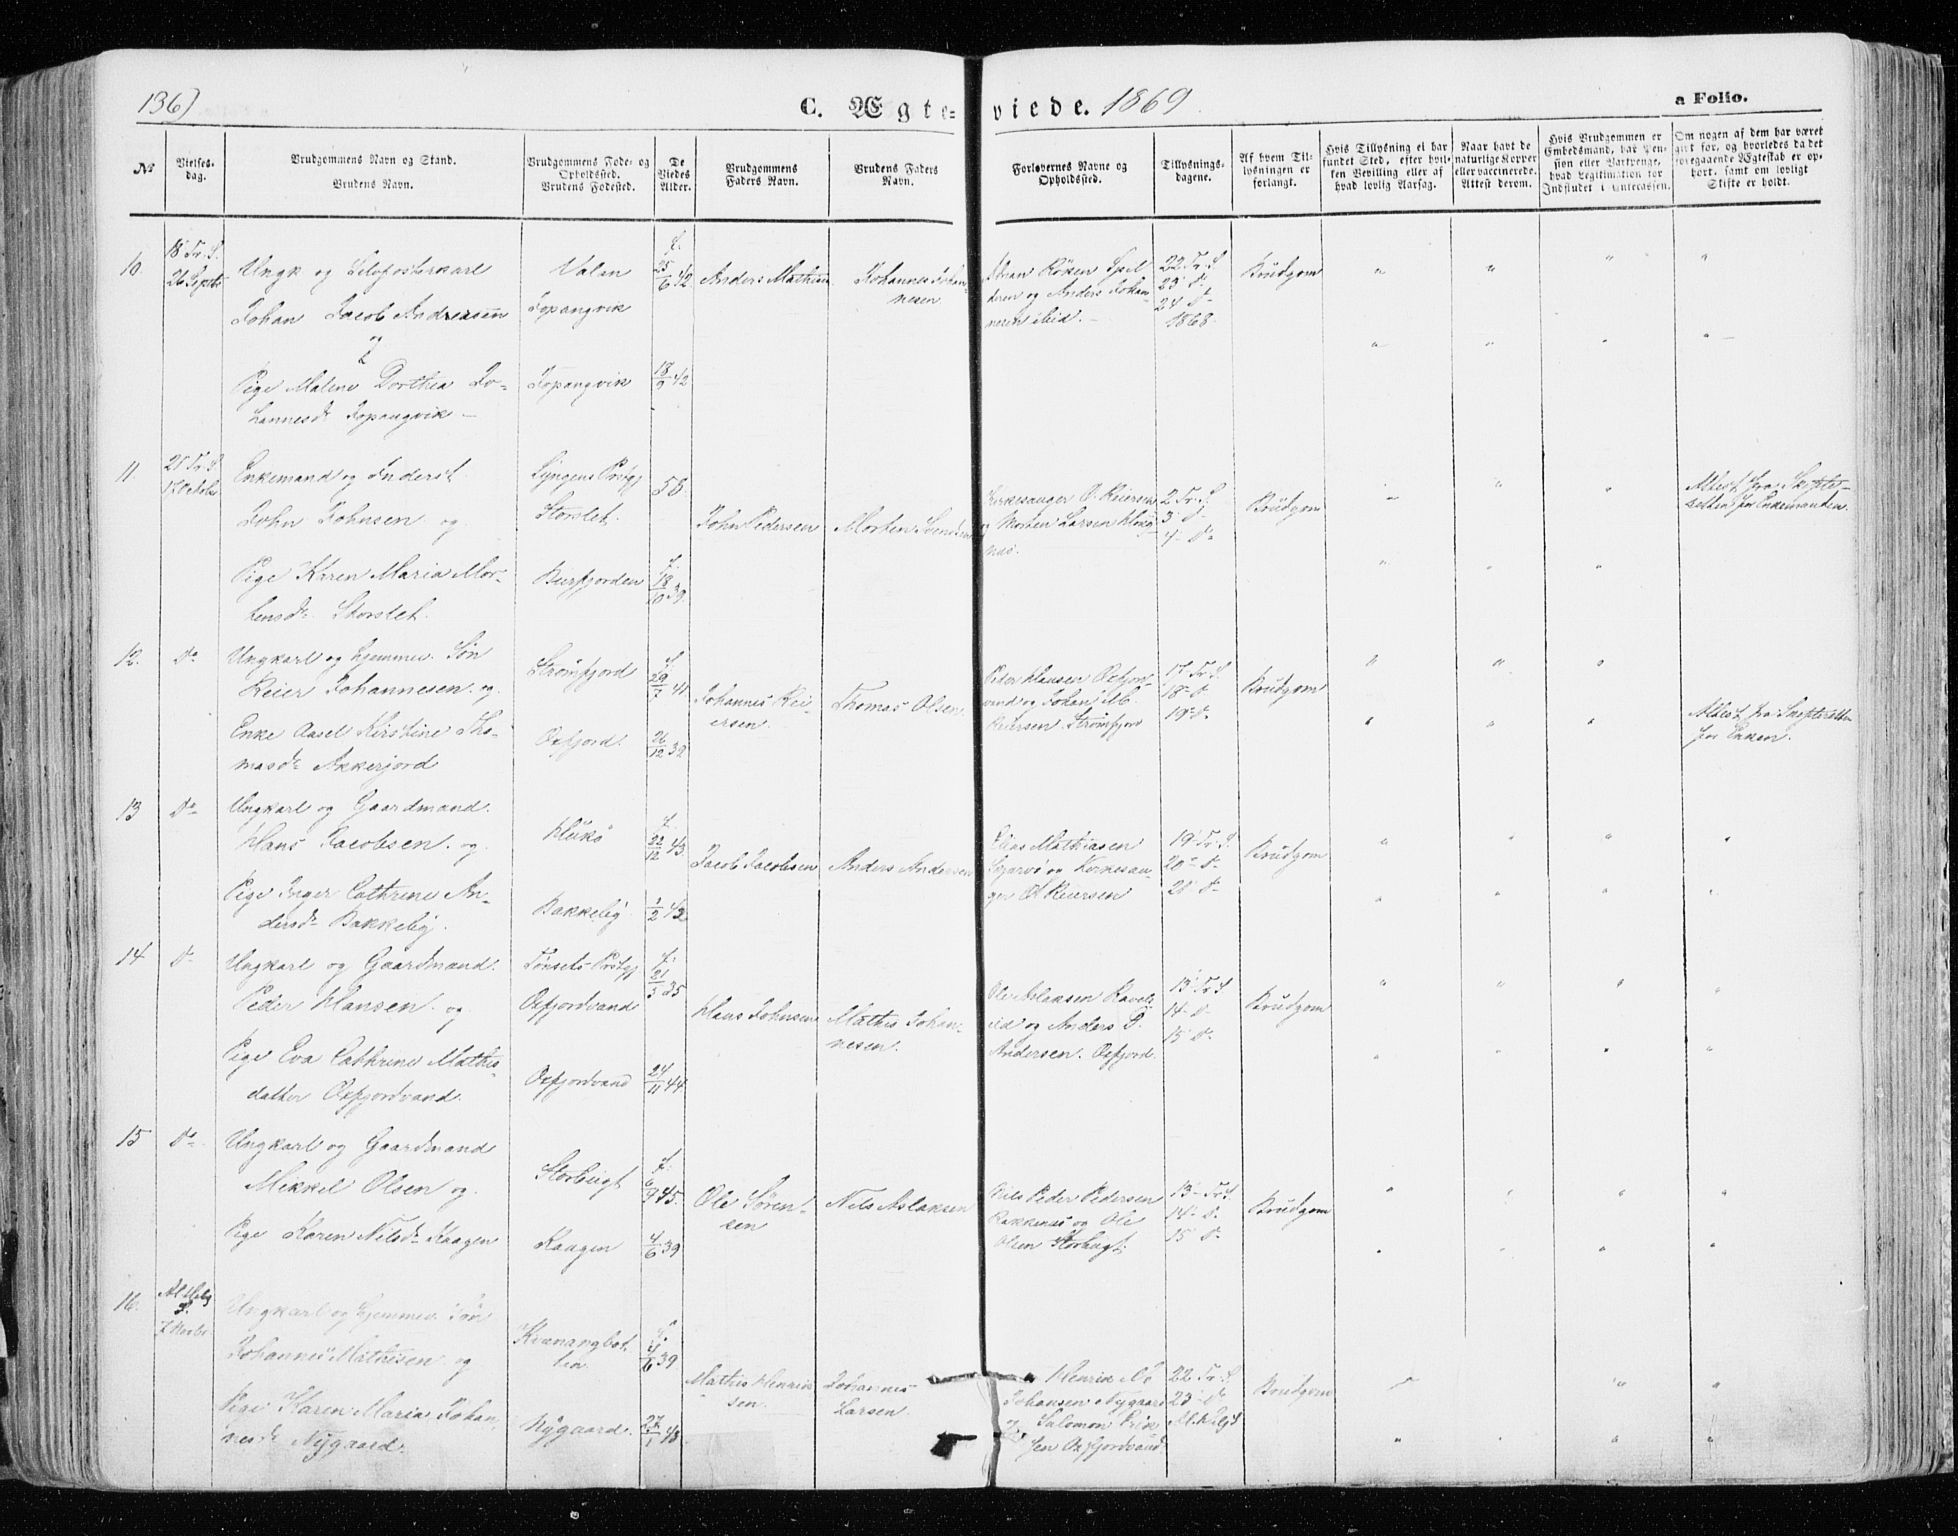 136)
C. Ægteviede. 1869
a Folio.
No
Vielsesdag.
Brudgommens Navn og Stand.
Brudens Navn.
Brudgommens Føde- og Opholdssted.
Brudens Fødested.
De Viedes Alder.
Brudgommens Faders Navn.
Brudens Faders Navn.
Forlovernes Navne og Opholdssted.
Tillysningsdagene.
Af hvem Tillysningen er forlangt.
Hvis Tillysning ei har fundet Sted, efter hvilken Bevilling eller af hvad lovlig Aarsag.
Naar havt de naturlige Kopper eller vaccinerede. Attest derom.
Hvis Brudgommen er Embedsmand, har Pension eller Vartpenge, hvad Legitimation for Indskudet i Enkecassen.
Om nogen af dem har været gift før, og hvorledes da det foregaaende Ægteskab er ophørt, samt om lovligt Skifte er holdt.
10.
18 Tr. S.
26 Septbr
Ungk og
Johan Jacob Andreasen
og
Pige Malene Dorthea Johannesdr Jopangvik
Valan
Jopangvik
Jopangvik
f. 25/6 42
18/9 42
Anders Mathisen
Johannes Johannesen
Johan Röken
og Anders Johannesen ibid.
22 Tr. S.
23 Do
24 Do
1868.
Brudgom
11.
21 Tr. S.
17 Octobr
Enkemand og Inderst
John Johnsen og
Pige Karen Maria Mortensdr Storslet.
Lyngens Prstgj
Storslet.
Burfjorden
58.
f. 18/10 39.
John Pedersen
Morten Svendsen
Kirkesanger O. Reiersen
og Morten Larsen
2 Tr. S.
3 Do
4 Do
Brudgom
Attest fra Skifteretten for Enkemanden.
12.
Do
Ungkarl og hjemmev. Søn
Reier Johannesen og
Enke Aasel Kirstine Thomasdr Akkerjord
Strømfjord
Oxfjord.
f. 29/7 41
26/12 39
Johannes Reiersen.
Thomas Olsen
Peder Hansen Oxfjordvand og Johan M.
Reiersen Strømfjord
17 Tr. S.
18 Do
19 Do
Brudgom
Attest fra Skifteretten for Enken.
13
Do
Ungkarl og Gaardmand.
Hans Jacobsen og
Pige Inger Cathrine Andersdr Bakkeby.
Bakkeby
f. 22/12 43
1/2 43
Jacob Jacobsen
Anders Andersen
Elias Mathiasen
og Kirkesanger O. Reiersen
19 Tr. S.
20 Do
21 Do
Brudgom
14
Do
Ungkarl og Gaardmand.
Peder Hansen og
Pige Eva Cathrine Mathisdatter Oxfjordvand.
Tönsets Prstgj
Oxfjordvand
Oxfjordvand
f. 21/3 35
24/11 44
Hans Johnsen
Mathis Johannesen.
Ole Aslaksen
og Anders P.
Andersen. Oxfjord.
13 Tr. S
14 Do
15 Do
Brudgom
15
Do
Ungkarl og Gaardmand
Mikkel Olsen og
Pige Karen Nilsdr Kaagen
Storbugt
Kaagen
f. 6/9 45.
4/6 39
Ole Sørensen
Nils Aslaksen
Nils Peder Pedersen
Rakkenes og Ole
Olsen Storbugt.
13 Tr. S.
14 Do
15 Do
Brudgom
16.
Al Helg
S.
7 Novbr
Ungkarl og hjemmev. Søn
Johannes Mathisen og
Pige Karen Maria Johannesdr Nygaard.
Kvænangbotten
Nygaard.
f. 4/6 39
27/1 48
Mathis Henriksen.
Johannes Larsen.
Henrik
Johansen Nygaard
og Salomon Eriksen Oxfjordvand
22 Tr. S.
23 Do
Al. Helgs
Brudgom